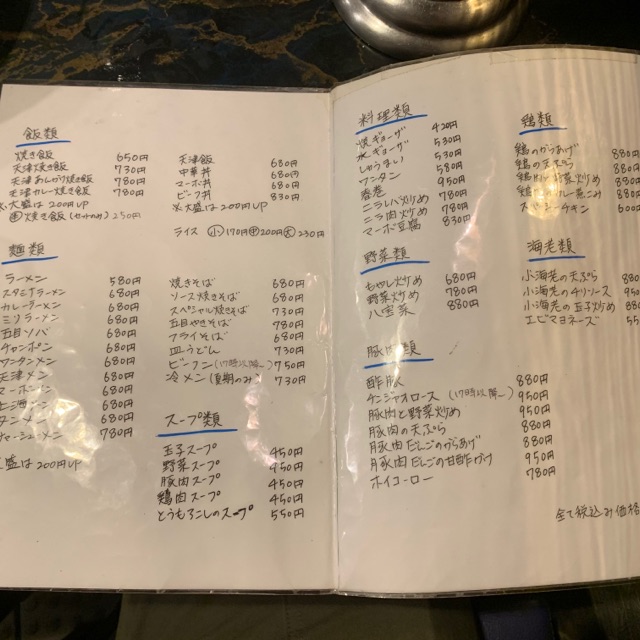 飯類
焼き飯 650円
天津焼き飯 730円
天津あんかけ焼き飯 780円
天津カレー焼き飯 780円
※大盛は200円UP
焼き飯(セットのみ) 250円
天津飯 680円
中華丼 680円
マーボ丼 680円
ビーフ丼 830円
※大盛は200円UP
ライス 小170円 中200円 大230円
麺類
ラーメン 580円
スタミナラーメン 680円
カレーラーメン 680円
ミソラーメン 680円
五目ソバ 680円
チャンポン 680円
ワンタンメン 680円
天津メン 680円
マーボーメン 680円
680円
タンメン 680円
チャーシューメン 780円
大盛は200円UP
焼きそば 680円
ソース焼きそば 680円
スペシャル焼きそば 730円
五目やきそば 780円
フライそば 680円
皿うどん 730円
ビーフン(17時以降〜) 750円
冷メン(夏期のみ) 730円
スープ類
玉子スープ 450円
野菜スープ 450円
豚肉スープ 450円
鶏肉スープ 450円
とうもろこしのスープ 550円
料理類
焼ギョーザ 420円
水ギョーザ 530円
しゅうまい 530円
ワンタン 580円
春巻 950円
ニラレバ炒め 780円
ニラ肉炒め 780円
マーボ豆腐 830円
野菜類
もやし炒め 680円
野菜炒め 780円
八宝菜 880円
豚肉類
酢豚 880円
チンジャオロース(17時以降〜) 950円
豚肉と野菜炒め 950円
豚肉の天ぷら 880円
豚肉だんごのからあげ 880円
豚肉だんごの甘酢かけ 950円
ホイコーロー 780円
鶏類
鶏のからあげ 880円
鶏の天ぷら 880円
鶏 野菜炒め 880
鶏 カレー煮こみ 880
スパイシーチキン 600
海老類
小海老の天ぷら 880
小海老のチリソース 950
小海老の玉子炒め 880
エビマヨネーズ 55
全て税込み価格